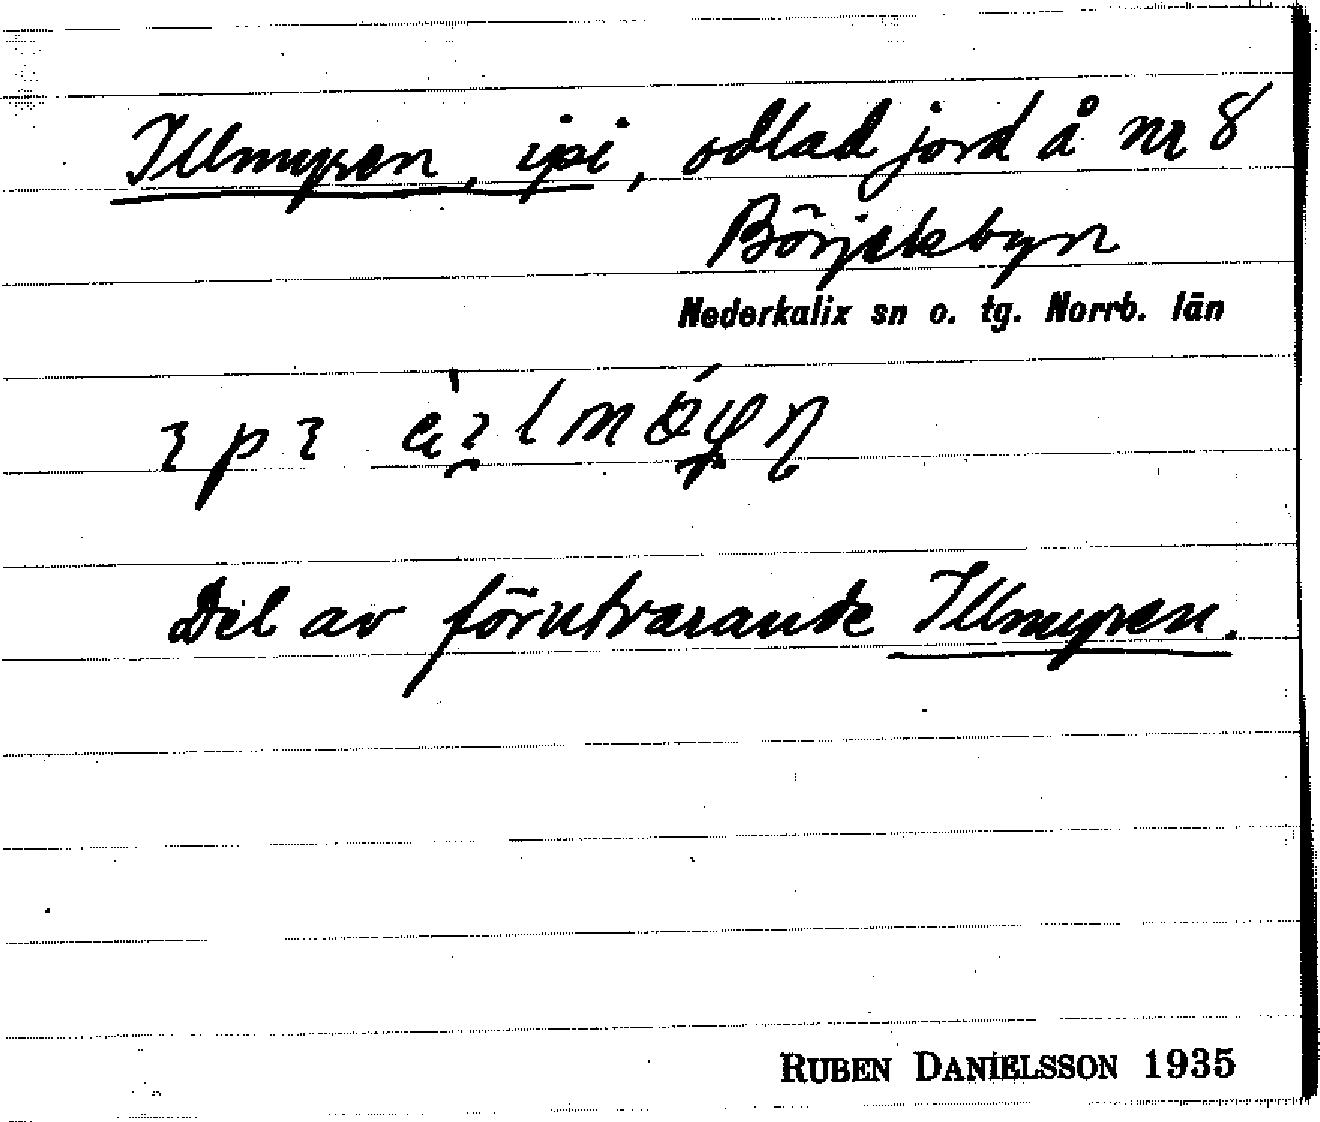 Illmyren, ipi, odlad jord å nr 8
Börjelsbyn
Nederkalix sn o. tg. Norrb. län
Del av förutvarande Illmyren.
RUBEN DANIELSSON 1935